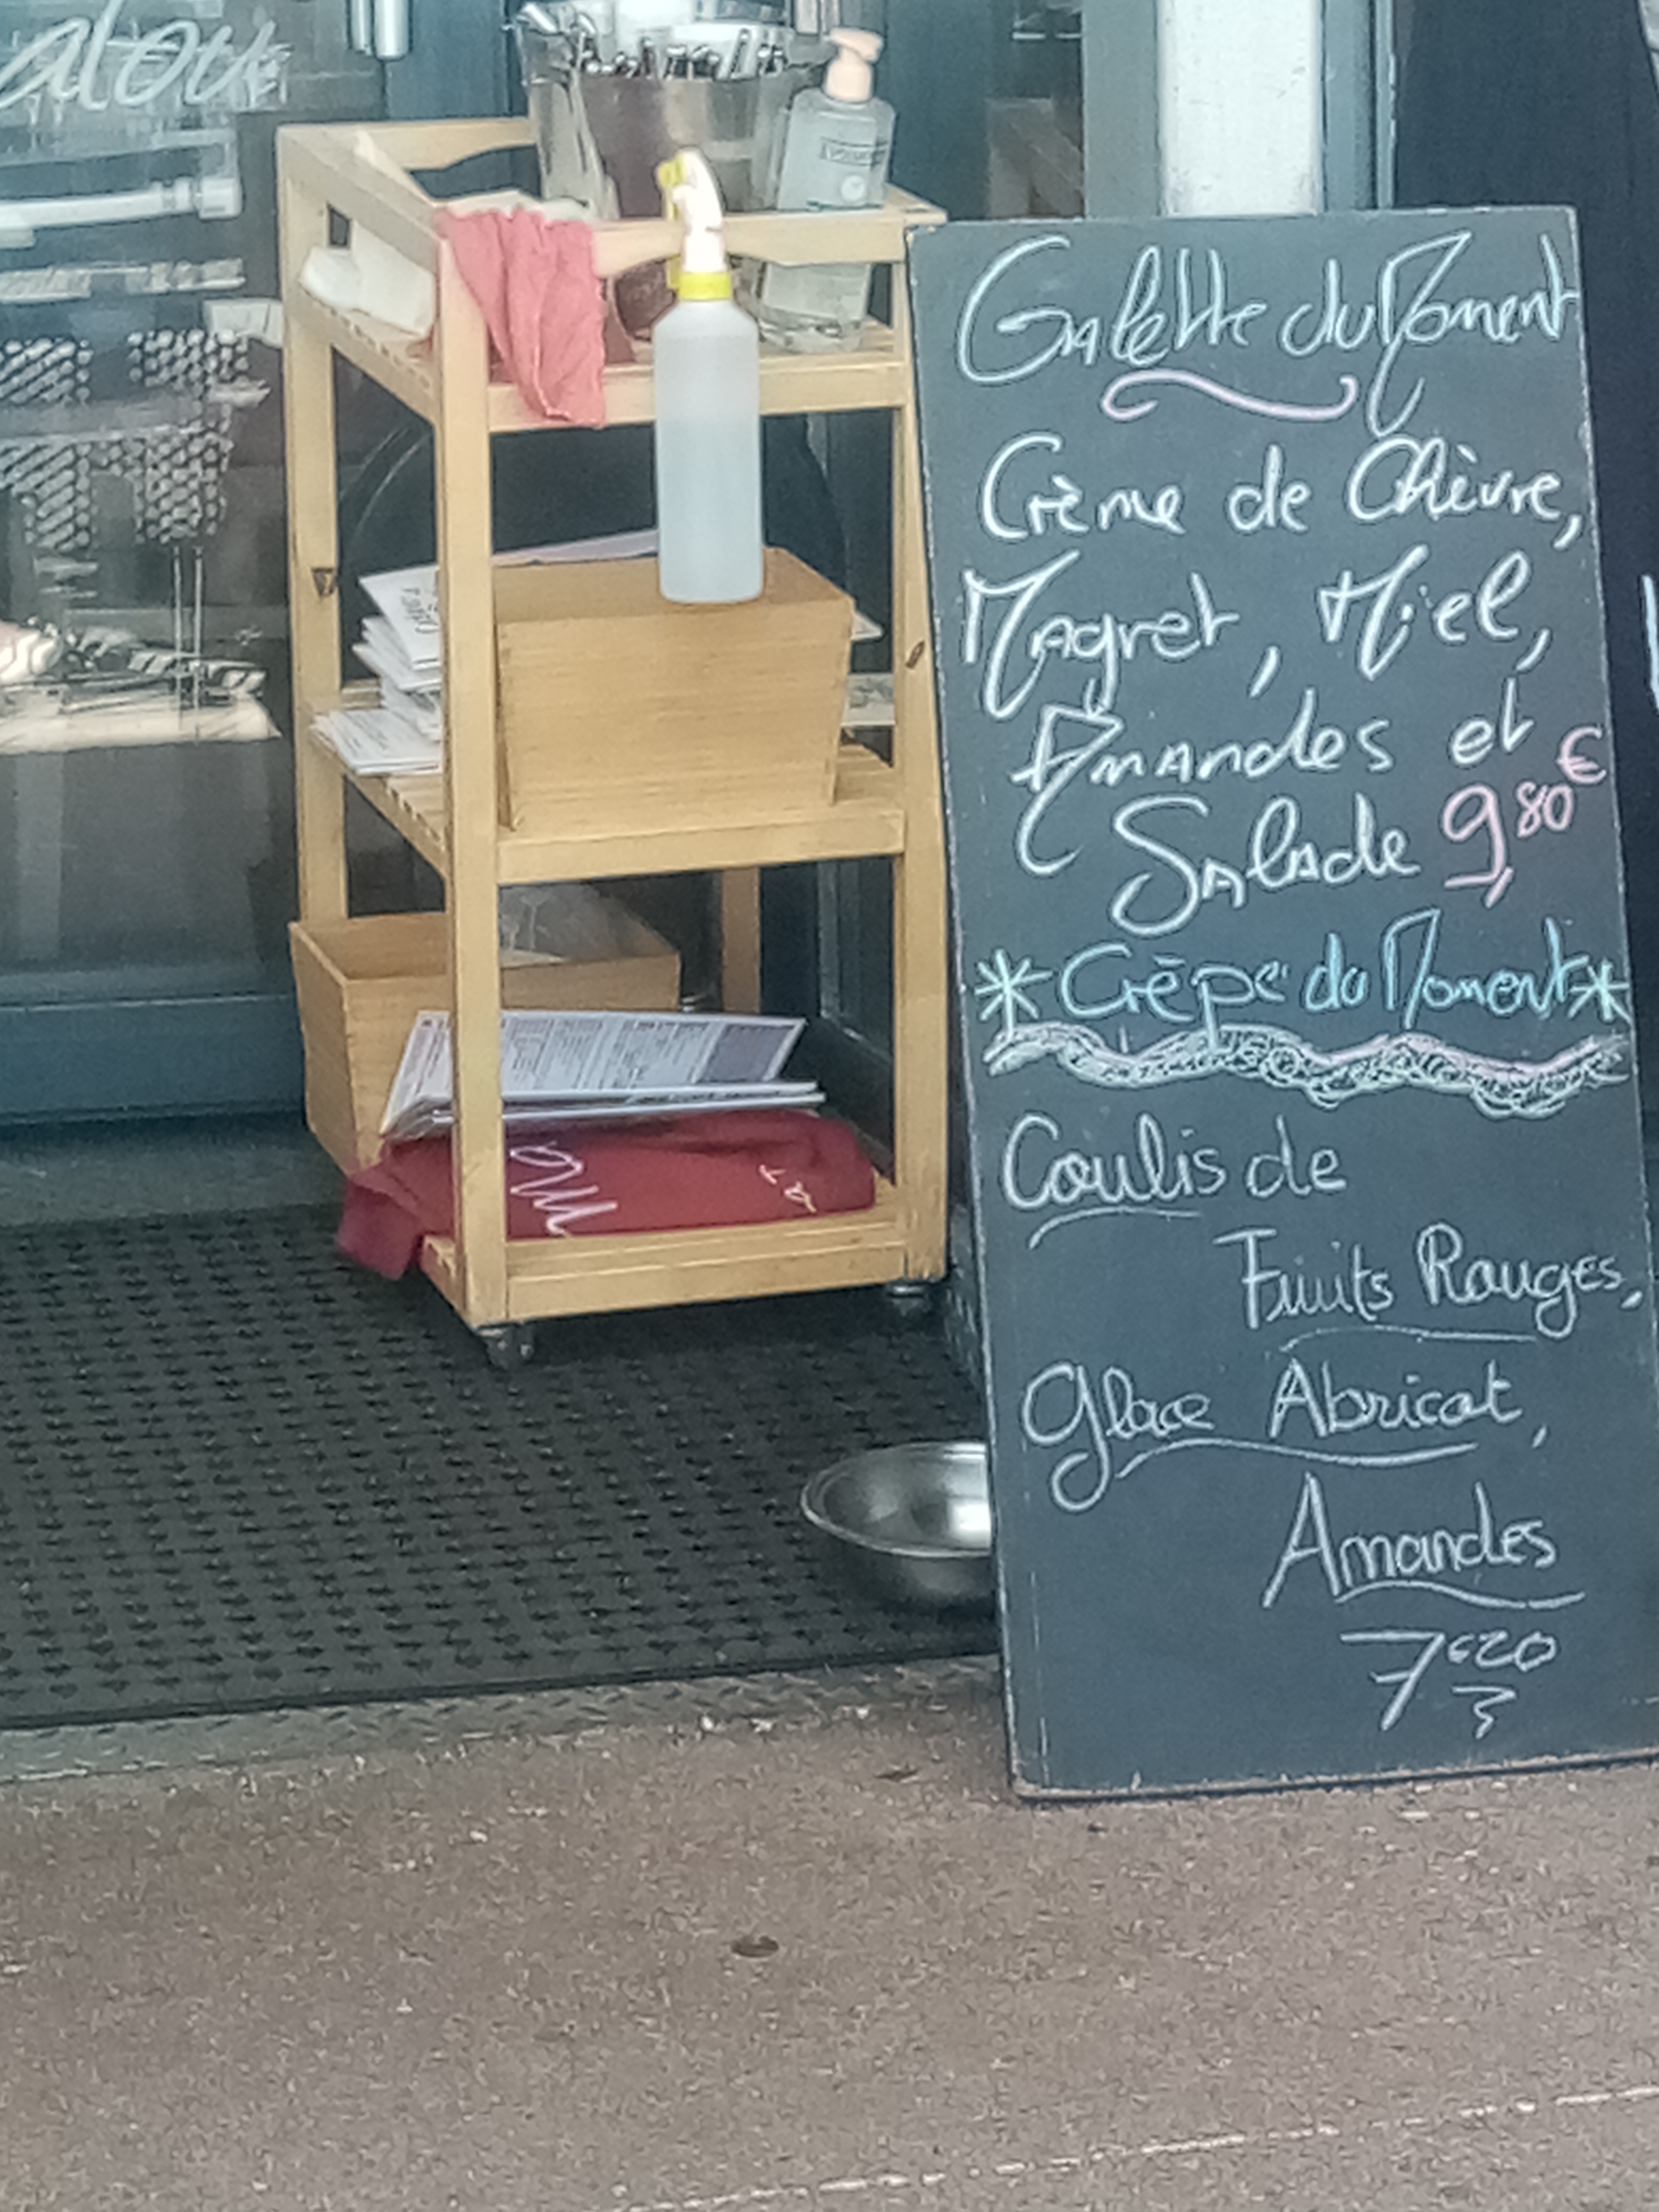 alou
Galette du Moment
Crème de Chèvre,
Magret, Miel,
Amandes et
Salade 9,80€
*Crêpe du Moment*
Coulis de
Fruits Rouges,
Glace Abricot,
Amandes
7€20